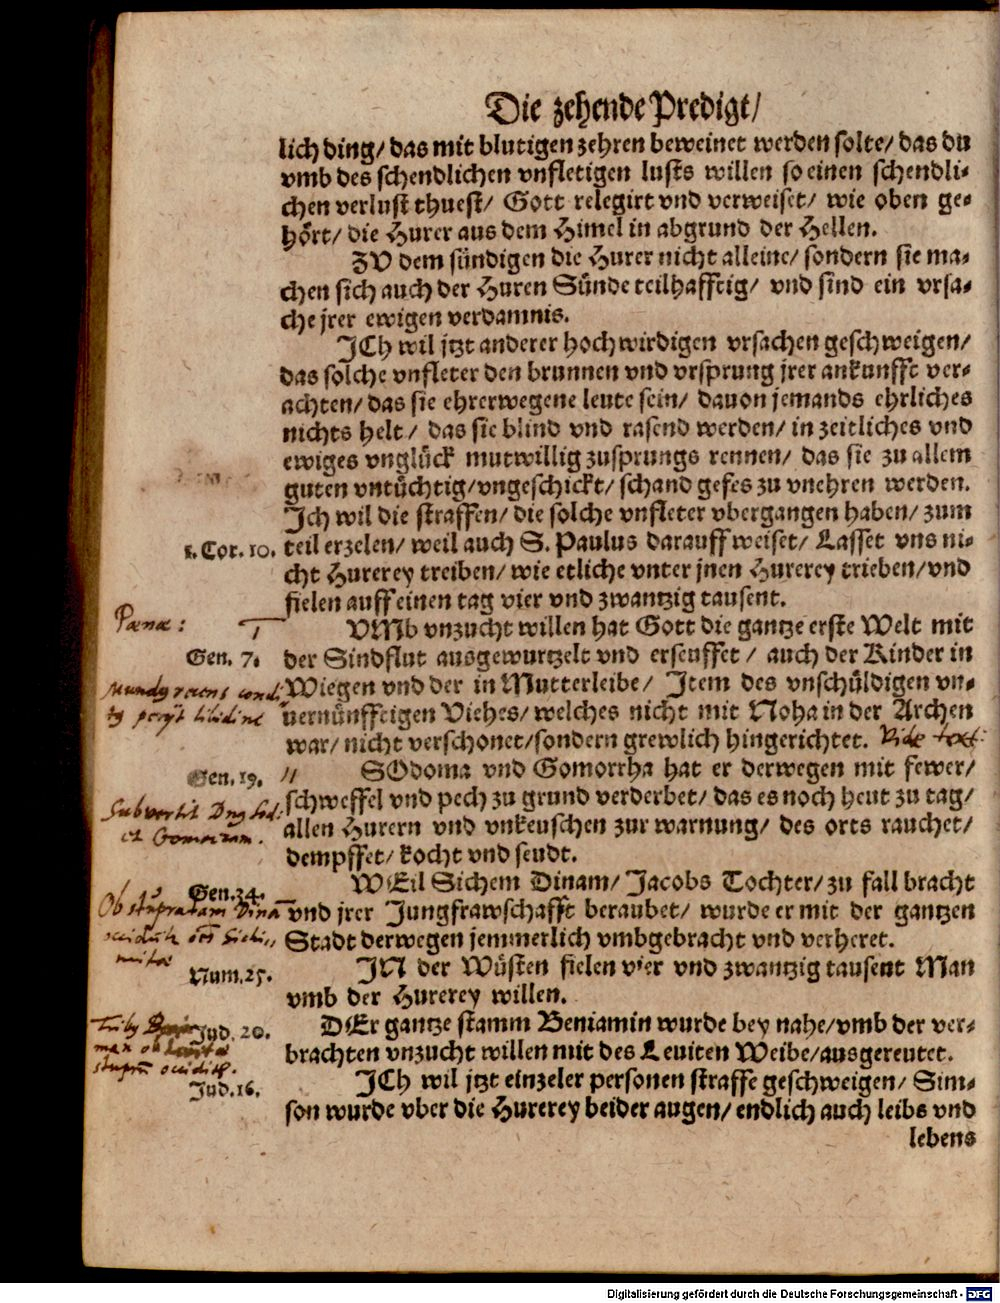 Die zehende Predigt/
lich ding/ das mit blutigen zehren beweinet werden solte/ das du
vmb des schendlichen vnfletigen lusts willen so einen schendli-
chen verlust thuest/ Gott relegirt vnd verweiset/ wie oben ge-
hört/ die Hurer aus dem Himel in abgrund der Hellen.
ZV dem sündigen die Hurer nicht alleine/ sondern sie ma-
chen sich auch der Huren Sünde teilhafftig/ vnd sind ein vrsa-
che jrer ewigen verdamnis.
JCh wil jtzt anderer hochwirdigen vrsachen geschweigen/
das solche vnfleter den brunnen vnd vrsprung jrer ankunfft ver-
achten/ das sie ehrerwegene leute sein/ dauon jemands ehrliches
nichts helt/ das sie blind vnd rasend werden/ in zeitliches vnd
ewiges vnglück mutwillig zusprungs rennen/ das sie zu allem
guten vntüchtig/ vngeschickt/ schand gefes zu vnehren werden.
Ich wil die straffen/ die solche vnfleter vbergangen haben/ zum
1. Cor. 10. teil erzelen/ weil auch S. Paulus darauff weiset/ Lasset vns ni-
cht Hurerey treiben/ wie etliche vnter jnen Hurerey trieben/ vnd
fielen auff einen tag vier vnd zwantzig tausent.
Pœnæ: VMb vnzucht willen hat Gott die gantze erste Welt mit
Gen. 7. der Sindflut ausgewurtzelt vnd erseuffet/ auch der Kinder in
Wiegen vnd der in Mutterleibe/ Item des vnschüldigen vn-
uernünfftigen Viehes/ welches nicht mit Noha in der Archen
war/ nicht verschonet/ sondern grewlich hingerichtet. Vide text:
Gen. 19. // SOdoma vnd Gomorrha hat er derwegen mit fewer/
Subvertit Dns Sod: schweffel vnd pech zu grund verderbet/ das es noch heut zu tag/
et Gomorram. allen Hurern vnd vnkeuschen zur warnung/ des orts rauchet/
dempffet/ kocht vnd seudt.
Gen. 34. WEil Sichem Dinam/ Jacobs Tochter/ zu fall bracht
Ob stupratam Dina vnd jrer Jungfrawschafft beraubet/ wurde er mit der gantzen
Stadt derwegen jemmerlich vmbgebracht vnd verheret.
Num. 25. JN der Wüsten fielen vier vnd zwantzig tausent Man
vmb der Hurerey willen.
Jud. 20. DEr gantze stamm Beniamin wurde bey nahe/ vmb der ver-
brachten vnzucht willen mit des Leuiten Weibe/ ausgereutet.
Jud. 16. JCh wil jtzt einzeler personen straffe geschweigen/ Sim-
son wurde vber die Hurerey beider augen/ endlich auch leibs vnd
lebens
Digitalisierung gefördert durch die Deutsche Forschungsgemeinschaft - DFG